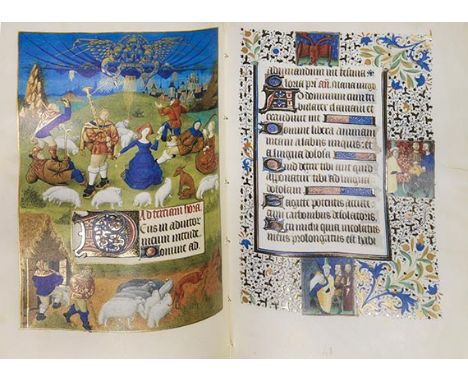 Ad terciam hora
Deus in adiutor
meum intende.
Domine ad.
adiuuandum me festina
Gloria pri. Añ. Maria uirgo
Ad dominum cum tri
bularer clamaui et
exaudiuit me
Domine libera animam
meam a labiis iniquis: et
a lingua dolosa
Quid detur tibi aut quid
apponatur tibi ad linguam
dolosam
Sagitte potentis acute
cum carbonibus desolatoriis
Heu michi quia incolatus
meus prolongatus est habi